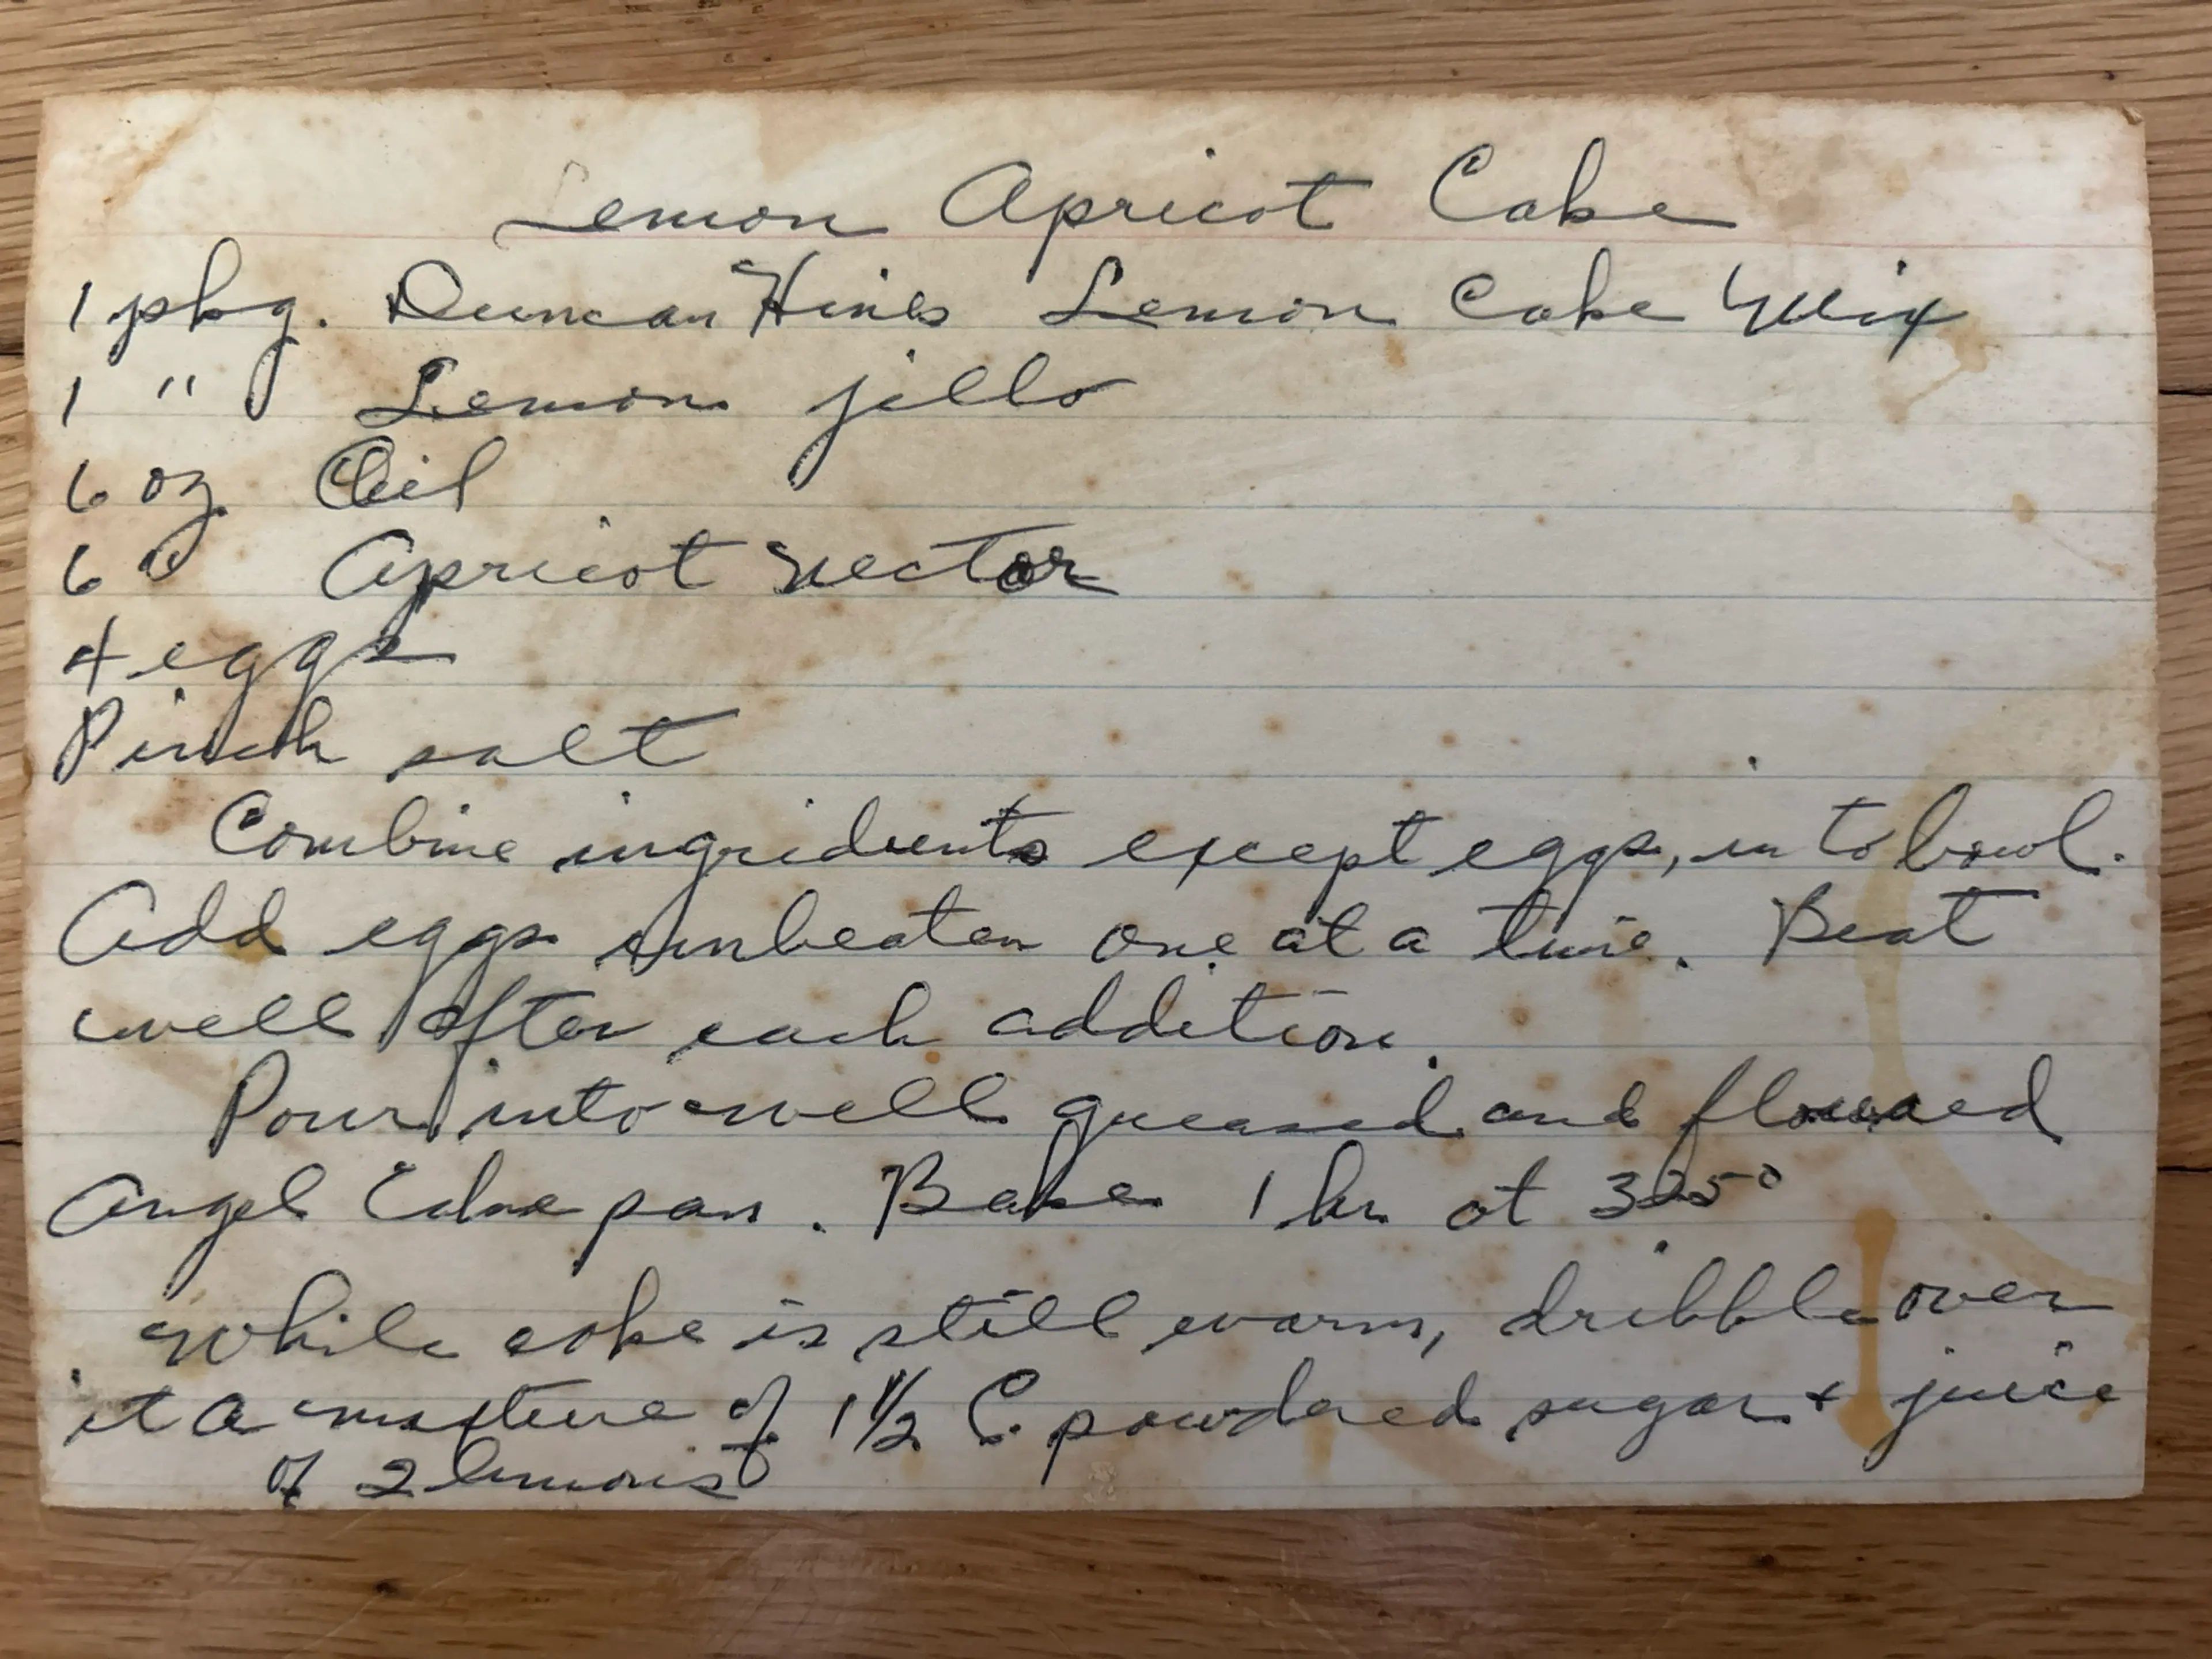 Lemon Apricot Cake
1 pkg. Duncan Hines Lemon Cake Mix
1 " Lemon jello
6 oz. Oil
6 " Apricot Nectar
4 eggs
Pinch salt
Combine ingridients except eggs, in to bowl.
Add eggs unbeaten one at a time. Beat
well after each addition.
Pour into well greased and floured
Angel Cake pan. Bake 1 hr. at 325°
While cake is still warm, dribble over
it a mixture of 1 1/2 C. powdered sugar + juice
of 2 lemons